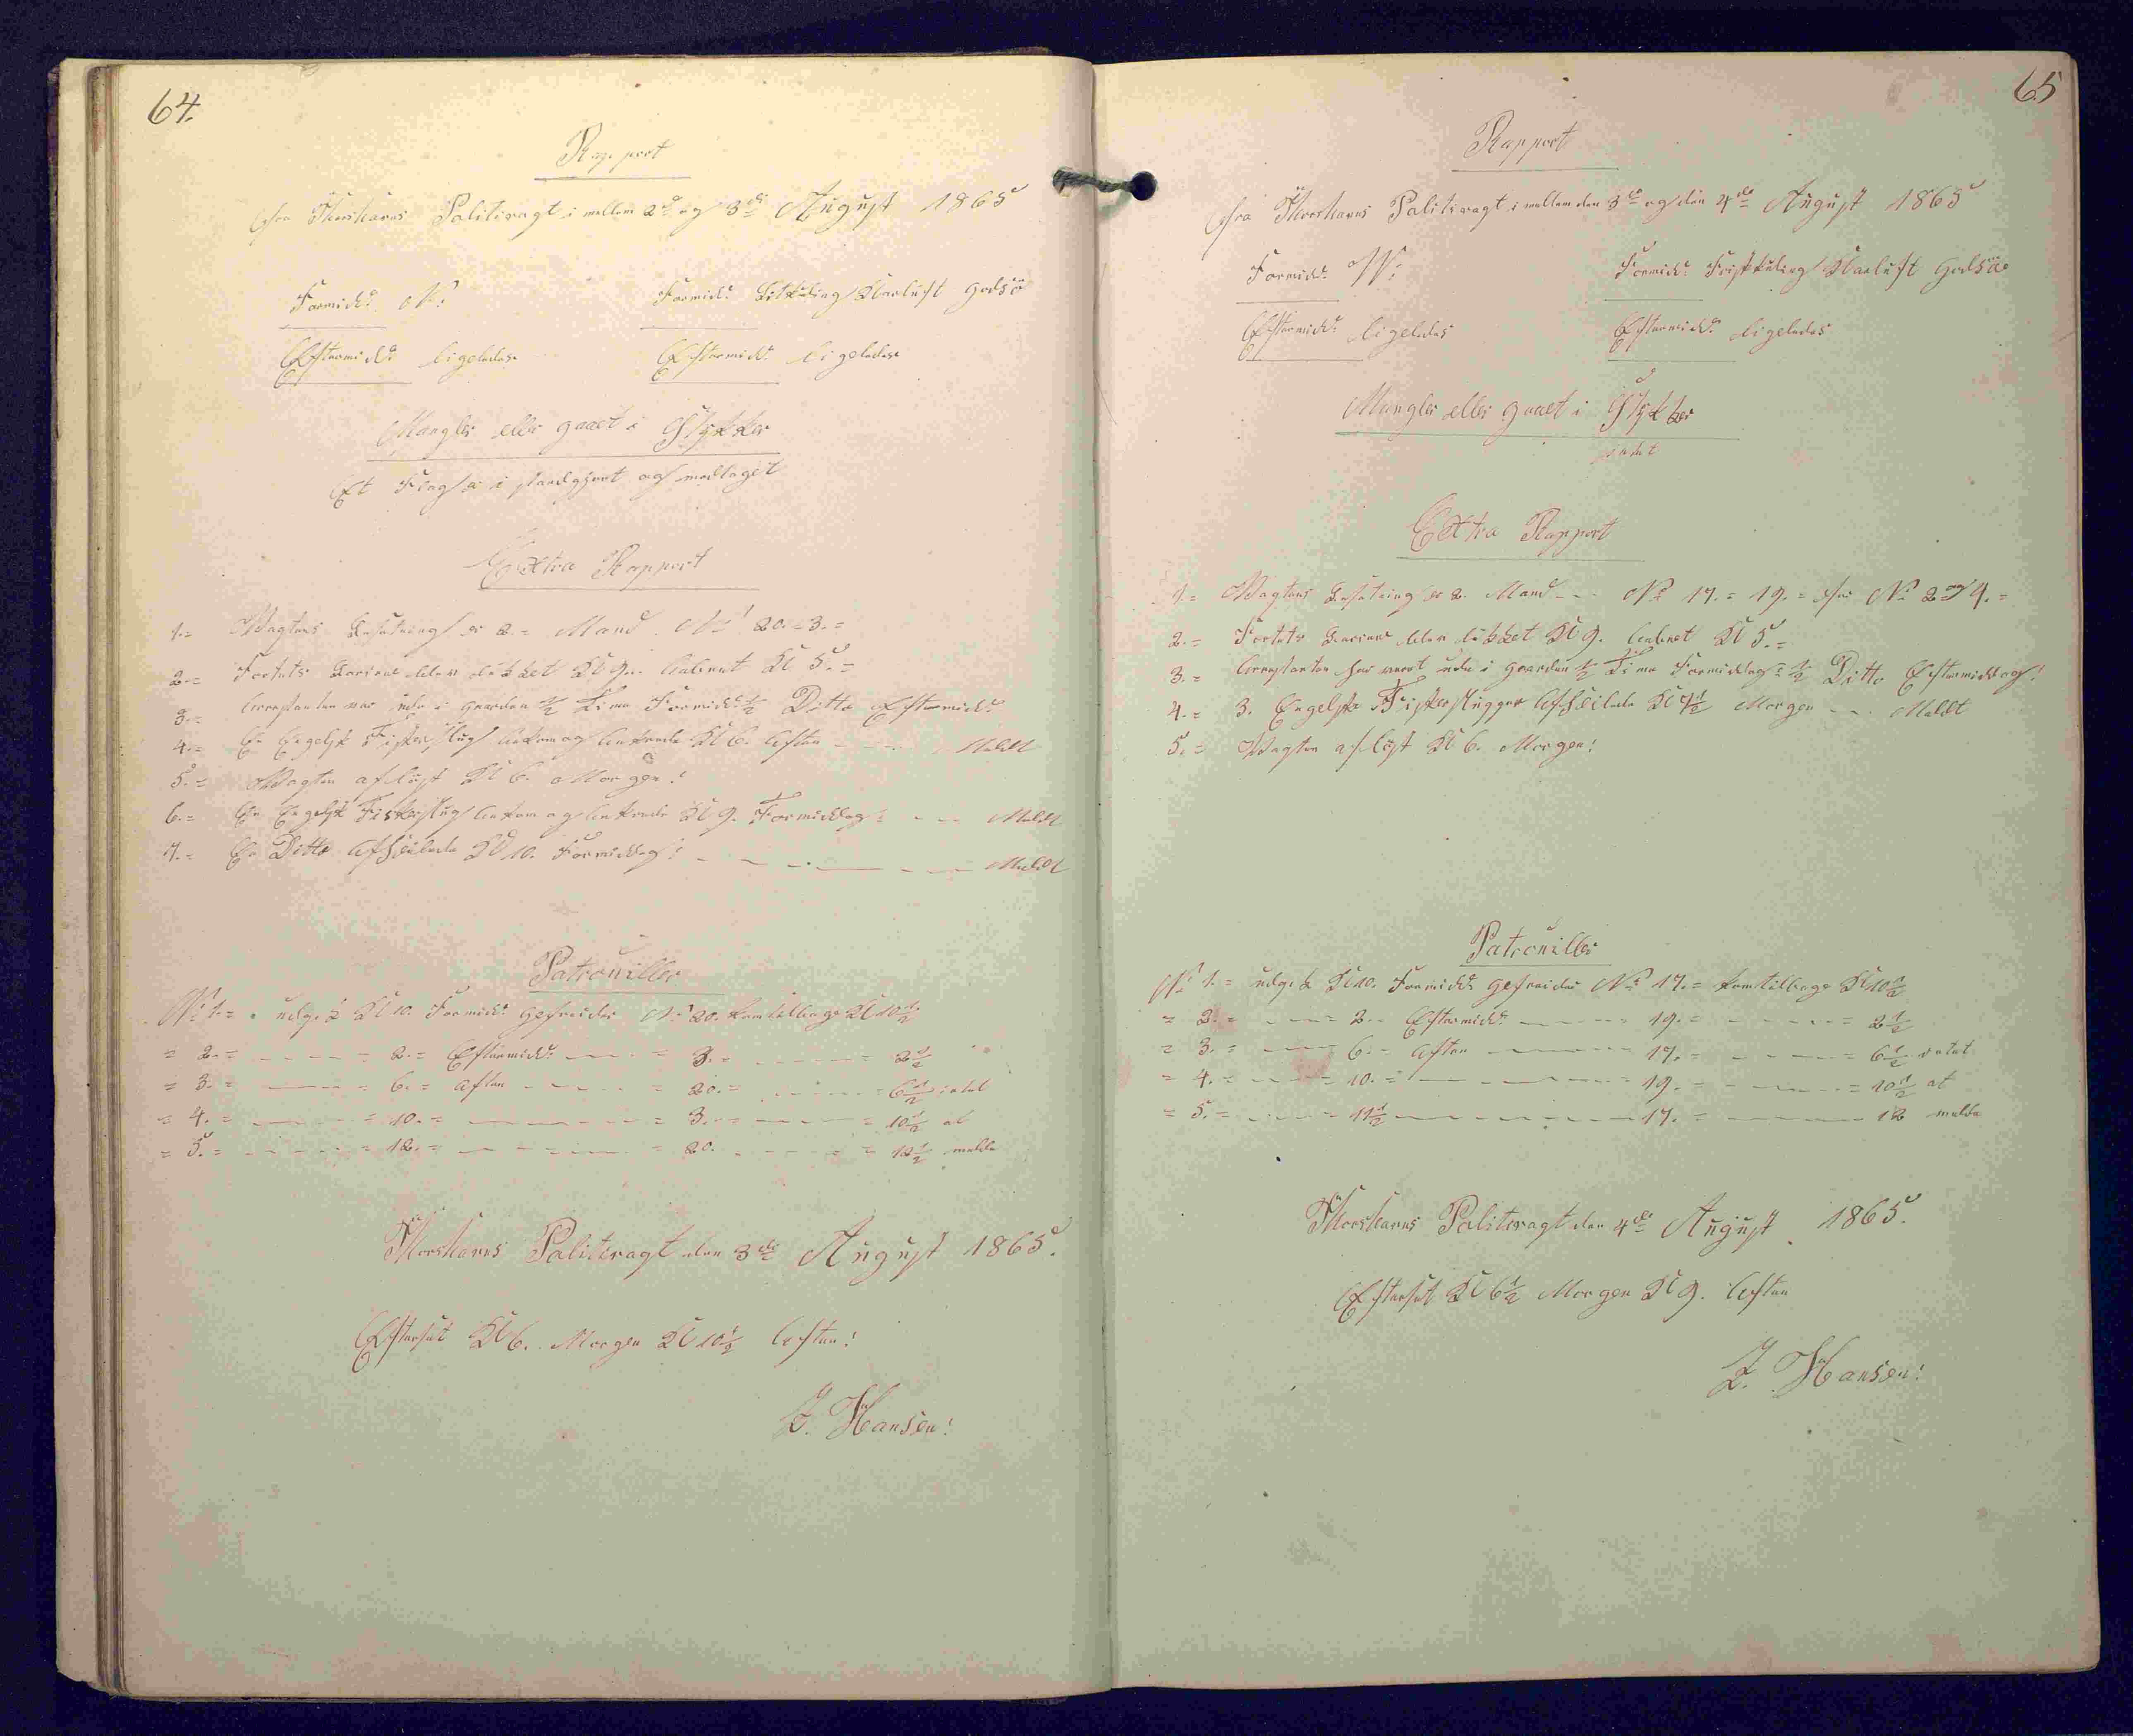 64.
Rapport
fra Thorshavns Politivagt i mellem 2de og 3de August 1865
Formidd: N: Formidd: Litkuling Klarluft godsö
Eftermidd: ligeledes Eftermidd: ligeledes
Mangler eller gaaet i Stykker
Et Flag er i standgjort og modtaget
Extra Rapport
1.= Vagtens Besætning er 2.= Mand No 20.=3.=
2.= Fortets Barriere blev lukket Kl 9. aabnet Kl 5.=
3.= Arrestanten var ude i gaarden ½ Time Formidd: ½ Ditto Eftermidd:
4.= En Engelsk Fiskerslup ankom og ankrede Kl 6. Aften - - - Meldt
5.= Vagten aflöst Kl 6. Morgen!
6.= En Engelsk Fiskerslup ankom og ankrede Kl 9. Formiddag: - - - Meldt
7.= En Ditto Afseilede Kl 10. Formiddag! - - - Meldt
Patrouiller
No 1.= udgik Kl 10. Formidd: gefreider No 20. kom tilbage Kl 10½
= 2.= - - - = 2.= Eftermidd: - - - = 3.= - - - = 2½
= 3.= - - - = 6.= Aften - - - = 20.= - - - = 6½ intet
= 4.= - - - = 10.= - - - = 3.= - - - = 10½ at
= 5.= - - - = 12.= - - - = 20. - - - = 12½ melde
Thorshavns Politivagt den 3de August 1865.
Efterset Kl 6. Morgen Kl 10½ Aften!
J. Hansen!
65
Rapport
fra Thorshavns Politivagt i mellem den 3de og den 4de August 1865
Formidd: N: Formidd: Friskkuling Klarluft godsöe
Eftermidd: ligeledes Eftermidd: ligeledes
Mangler eller gaaet i Stykker
intet
Extra Rapport
1.= Vagtens Besætning er 2. Mand - - - No 17.= 19.= for No 2 og 4.=
2.= Fortets Barriere blev lukket Kl 9. aabnet Kl 5.=
3.= Arrestanten har været ude i gaarden ½ Time Formiddag: ½ Ditto Eftermiddag!
4.= 3. Engelske Fiskerslupper Afseilede Kl 7½ Morgen - - - Meldt
5.= Vagten aflöst Kl 6. Morgen!
Patrouiller
No 1.= udgik Kl 10. Formidd: gefreider No 17.= kom tilbage Kl 10½
= 2.= - - - = 2.- Eftermidd: - - - = 19.= - - - = 2½
= 3.= - - - = 6.- Aften - - - 17.= - - - = 6½ intet
= 4.= - - - = 10.= - - - 19.= - - - = 10½ at
= 5.= - - - = 11½ - - - 17.= - - - 12 melde
Thorshavns Politivagt den 4de August 1865.
Efterset Kl 6½ Morgen Kl 9. Aften
J. Hansen!